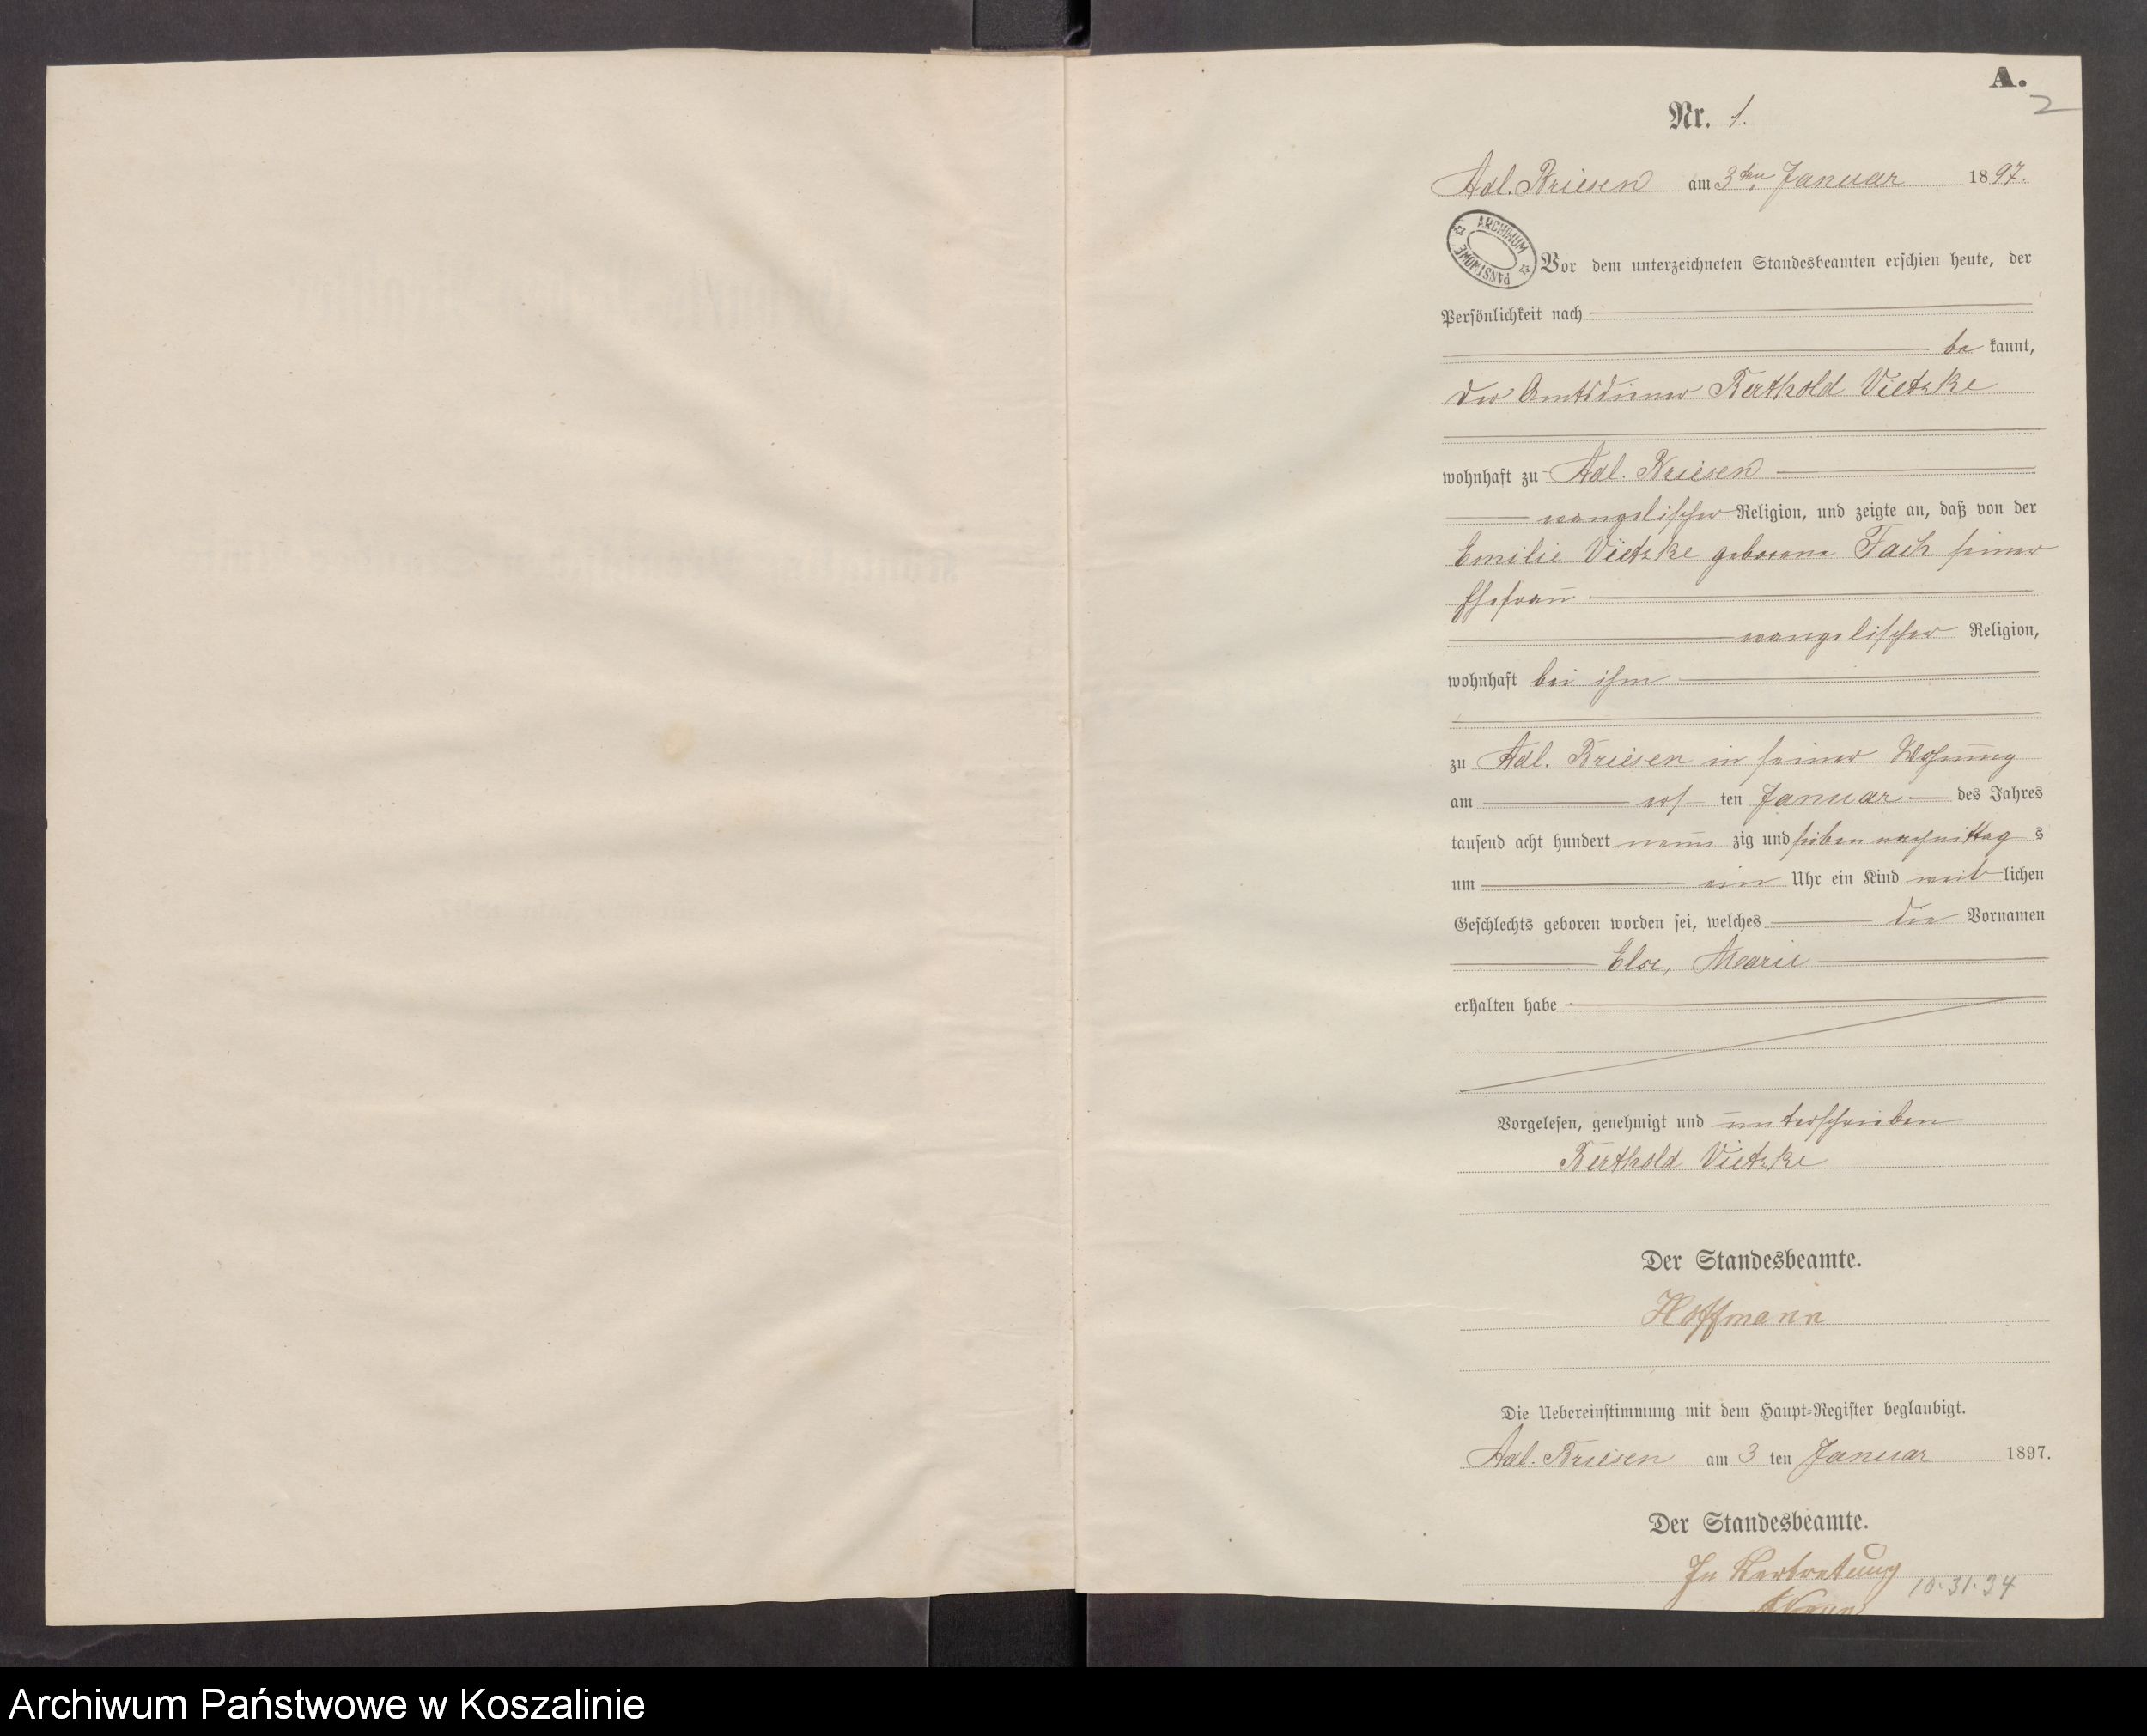 A.
2
Nr. 1.
Adl. Briesen am 3ten Januar 1897.
ARCHIWUM PAŃSTWOWE
Vor dem unterzeichneten Standesbeamten erschien heute, der
Persönlichkeit nach
be kannt,
der Amtsdiener Berthold Vietzke
wohnhaft zu Adl. Briesen
evangelischer Religion, und zeigte an, daß von der
Emilie Vietzke geborene Fach seiner
Ehefrau
evangelischer Religion,
wohnhaft bei ihm
zu Adl. Briesen in seiner Wohnung
am ers ten Januar des Jahres
tausend acht hundert neun zig und sieben nachmittag s
um ein Uhr ein Kind weib lichen
Geschlechts geboren worden sei, welches die Vornamen
Else, Marie
erhalten habe
Vorgelesen, genehmigt und unterschrieben
Berthold Vietzke
Der Standesbeamte.
Hoffmann
Die Uebereinstimmung mit dem Haupt-Register beglaubigt.
Adl. Briesen am 3 ten Januar 1897.
Der Standesbeamte.
In Vertretung
10.31.34
Archiwum Państwowe w Koszalinie